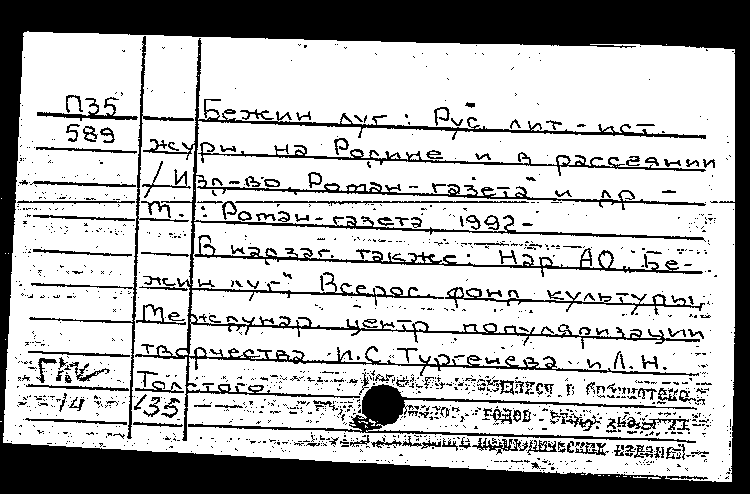 П35
589
Бежин луг : Рус. лит.-ист.
журн. на Родине и в рассеянии
/ Изд-во „Роман-газета“ и др. –
М. : Роман-газета, 1992-
В надзаг. также: Нар. АО „Бе-
жин луг“, Всерос. фонд культуры,
Междунар центр популяризации
творчества И.С. Тургенева и Л.Н.
Толстого
14
135
в библиотеке
годов
периодических изданий